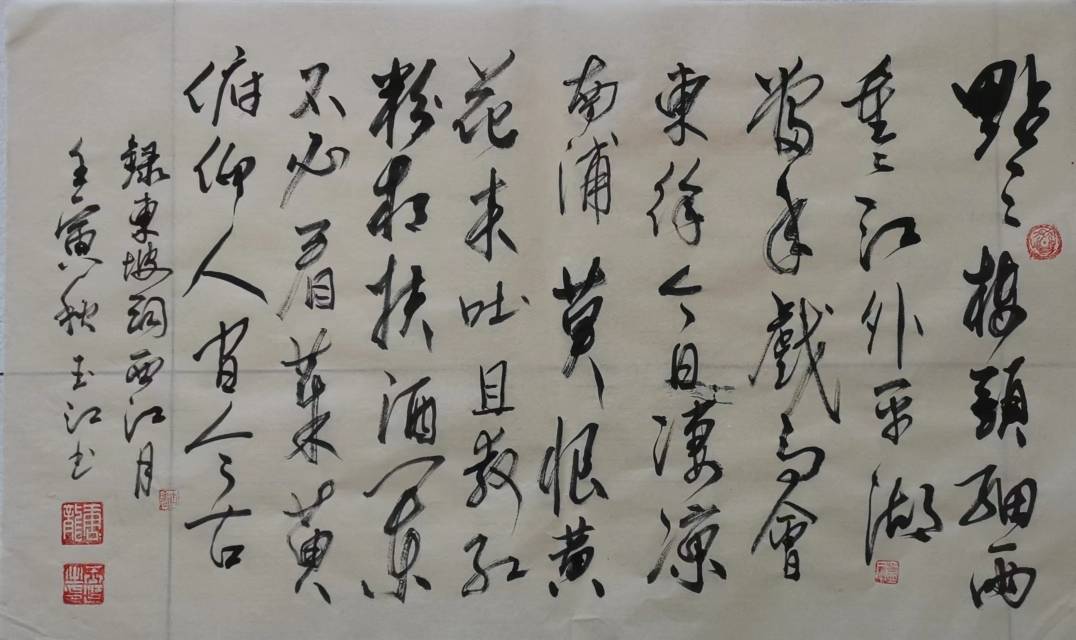 點〻樓頭細雨
重〻江外平湖
當年戲馬會
東徐今日淒涼
南浦莫恨黄
花未吐且教红
粉相扶酒阑
不必看茱萸
俯仰人间今古
録東坡詞西江月
壬寅秋玉江书